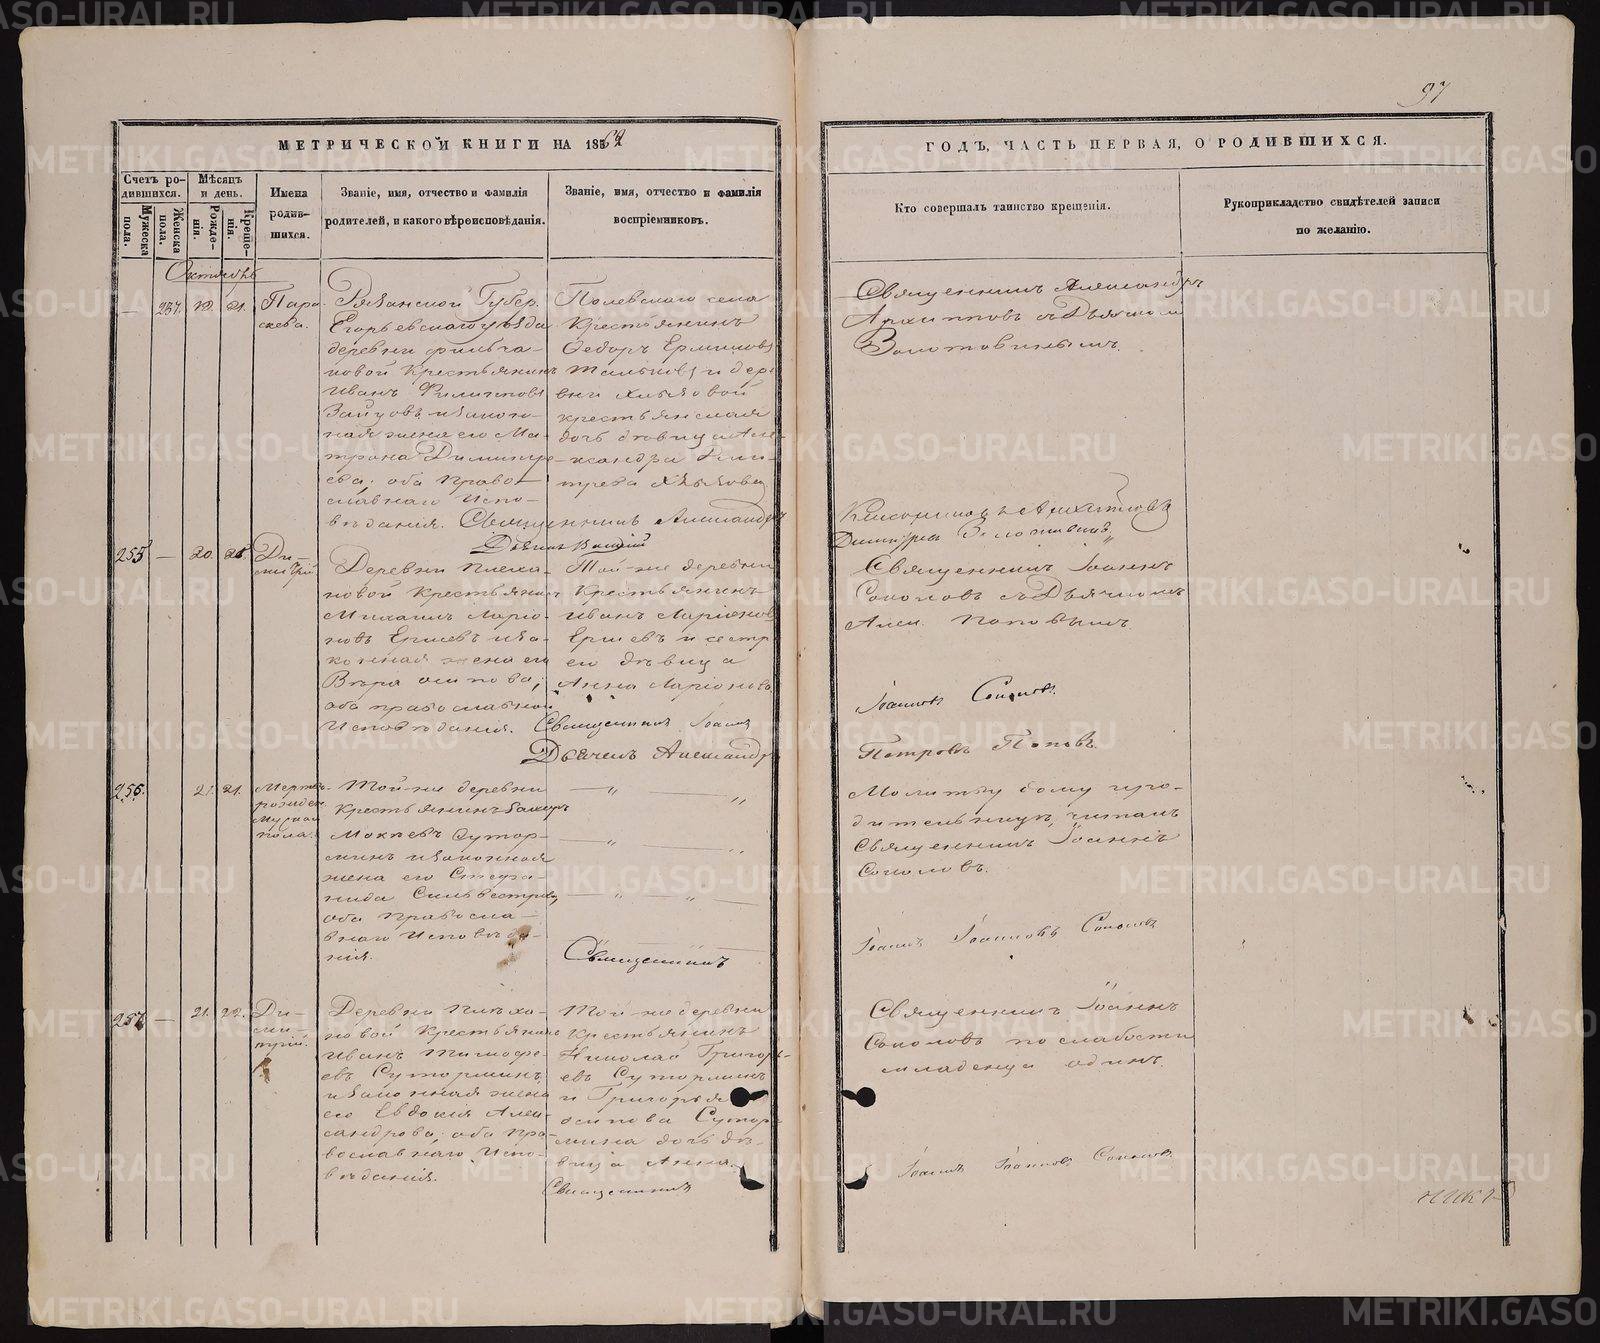 97
МЕТРИЧЕСКОЙ КНИГИ НА 1864
ГОДЪ, ЧАСТЬ ПЕРВАЯ, О РОДИВШИХСЯ.
Счетъ родившихся.
Мужеска пола.
Женска пола.
Мѣсяцъ и день.
Рожденія.
Крещенія.
Имена родившихся.
Званіе, имя, отчество и фамилія
родителей, и какого вѣроисповѣданія.
Званіе, имя, отчество и фамилія
воспріемниковъ.
Кто совершалъ таинство крещенія.
Рукоприкладство свидѣтелей записи
по желанію.
Октябрь
— 237. 21.
Пара-
скева.
Рязанской Губер.
Егорьевскаго уѣзда
деревни
новой Крестьянинъ
Иванъ Филипповъ
Зайцовъ и закон-
ная жена его Ма-
трона Димитрі-
ева; оба Право-
славнаго Испо-
вѣданія.
Полевскаго села
Крестьянинъ
Ѳедоръ
и дер.
вни
крестьянская
дочь дѣвица Але-
ксандра Дми-
Священникъ Александръ
Архипповъ съ Дьячкомъ
Золотовинымъ.
Священникъ Александръ
Димитрій Золотавинъ
255 — 20.
Ди-
митрій.
Деревни
новой Крестьянинъ
Михаилъ Ларіо-
новъ Ершевъ и за-
конная жена его
Вѣра Осипова;
оба православнаго
Исповѣданія.
Той-же деревни
Крестьянинъ
Иванъ Ларіоновъ
Ершевъ и сестра
его дѣвица
Анна Ларіонова
Священникъ Іоаннъ
Соколовъ съ Дьячкомъ
Алек. Поповымъ.
Священникъ Іоаннъ
Іоанновъ Соколовъ.
Дьячекъ Александръ
Петровъ Поповъ.
256. 21. 21.
Мертво-
рожден.
Мужска
пола.
Той-же деревни
Крестьянинъ
Мокіевъ Сутор-
минъ и законная
жена его Стефа-
нида Сильвестрова,
оба Правосла-
внаго Исповѣда-
нія.
— „ —
— „ —
— „ —
Молитву
читалъ
Священникъ Іоаннъ
Соколовъ.
Священникъ
Іоаннъ Іоанновъ Соколовъ
257. — 21. 22.
Ди-
ми-
трій.
Деревни
новой Крестьянинъ
Иванъ Тимофе-
евъ Суторминъ,
и законная жена
его Евдокія Алек-
сандрова, оба Пра-
вославнаго Испо-
вѣданія.
Той-же деревни
Крестьянинъ
Николай Григорь-
евъ Суторминъ
и Григорья
Осипова Сутор-
мина дочь дѣ-
вица Анна.
Священникъ Іоаннъ
Соколовъ по слабости
младенца одинъ.
Священникъ
Іоаннъ Іоанновъ Соколовъ
METRIKI.GASO-URAL.RU